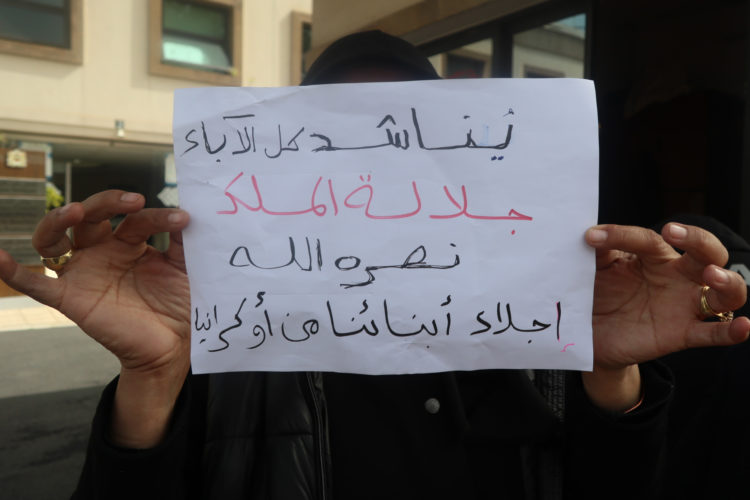 يُناشد كل الآباء
جلالة الملك
نصره الله
إجلاء أبنائنا من أوكرانيا